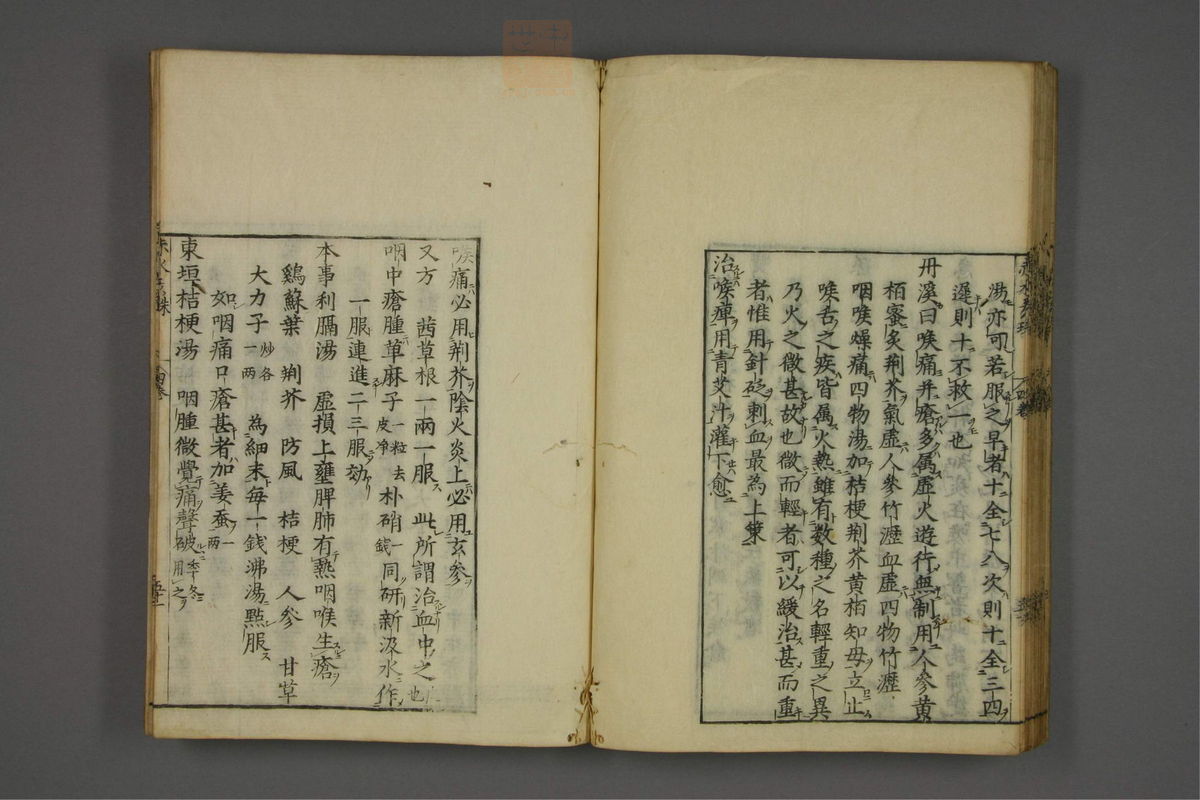 湯亦可若服之早者十全七八次則十全三四
遲則十不救一也
丹溪曰喉痛并瘡多属虛火遊行無制用人參黄
栢蜜炙荆芥氣虛人參竹瀝血虛四物竹瀝
咽喉燥痛四物湯加桔梗荆芥黄栢知母立止
喉舌之疾皆属火熱雖有数種之名輕重之異
乃火之微甚故也微而輕者可以緩治甚而重
者惟用針砭刺血最為上策
治喉痺用青艾汁灌下愈
喉痛必用荆芥陰火炎上必用玄参
又方 茜草根一兩一服 此所謂治血中之
咽中瘡腫草麻子一粒去皮净朴硝一錢同研新汲水作
一服連進二三服効
本事利膈湯 虛損上壅脾肺有熱咽喉生瘡
鷄蘇葉 荆芥 防風 桔梗 人参 甘草
大力子炒各一两 為細末每一錢沸湯點服
如咽痛口瘡甚者加姜蚕一两
東垣桔梗湯 咽腫微覺痛聲破季冬用之